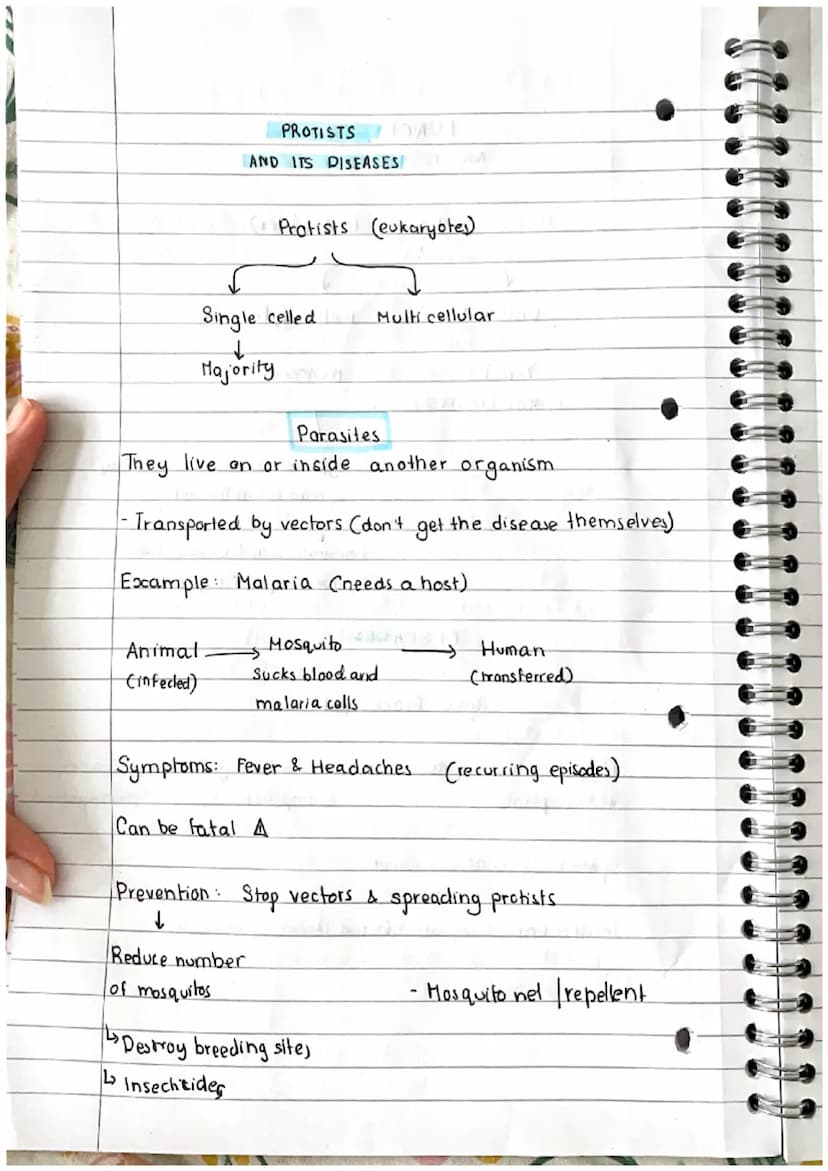 PROTISTS
AND ITS DISEASES
Protists (eukaryotes)
Single celled Multi cellular
Majority
Parasites
They live on or inside another organism
- Transported by vectors (don't get the disease themselves)
Example: Malaria (needs a host)
Animal → Mosquito → Human
(infected) Sucks blood and (transferred)
malaria cells
Symptoms: Fever & Headaches (recurring episodes)
Can be fatal ⚠
Prevention: Stop vectors & spreading protists
↓
Reduce number
of mosquitos - Mosquito net / repellent
↳ Destroy breeding sites
↳ Insecticides